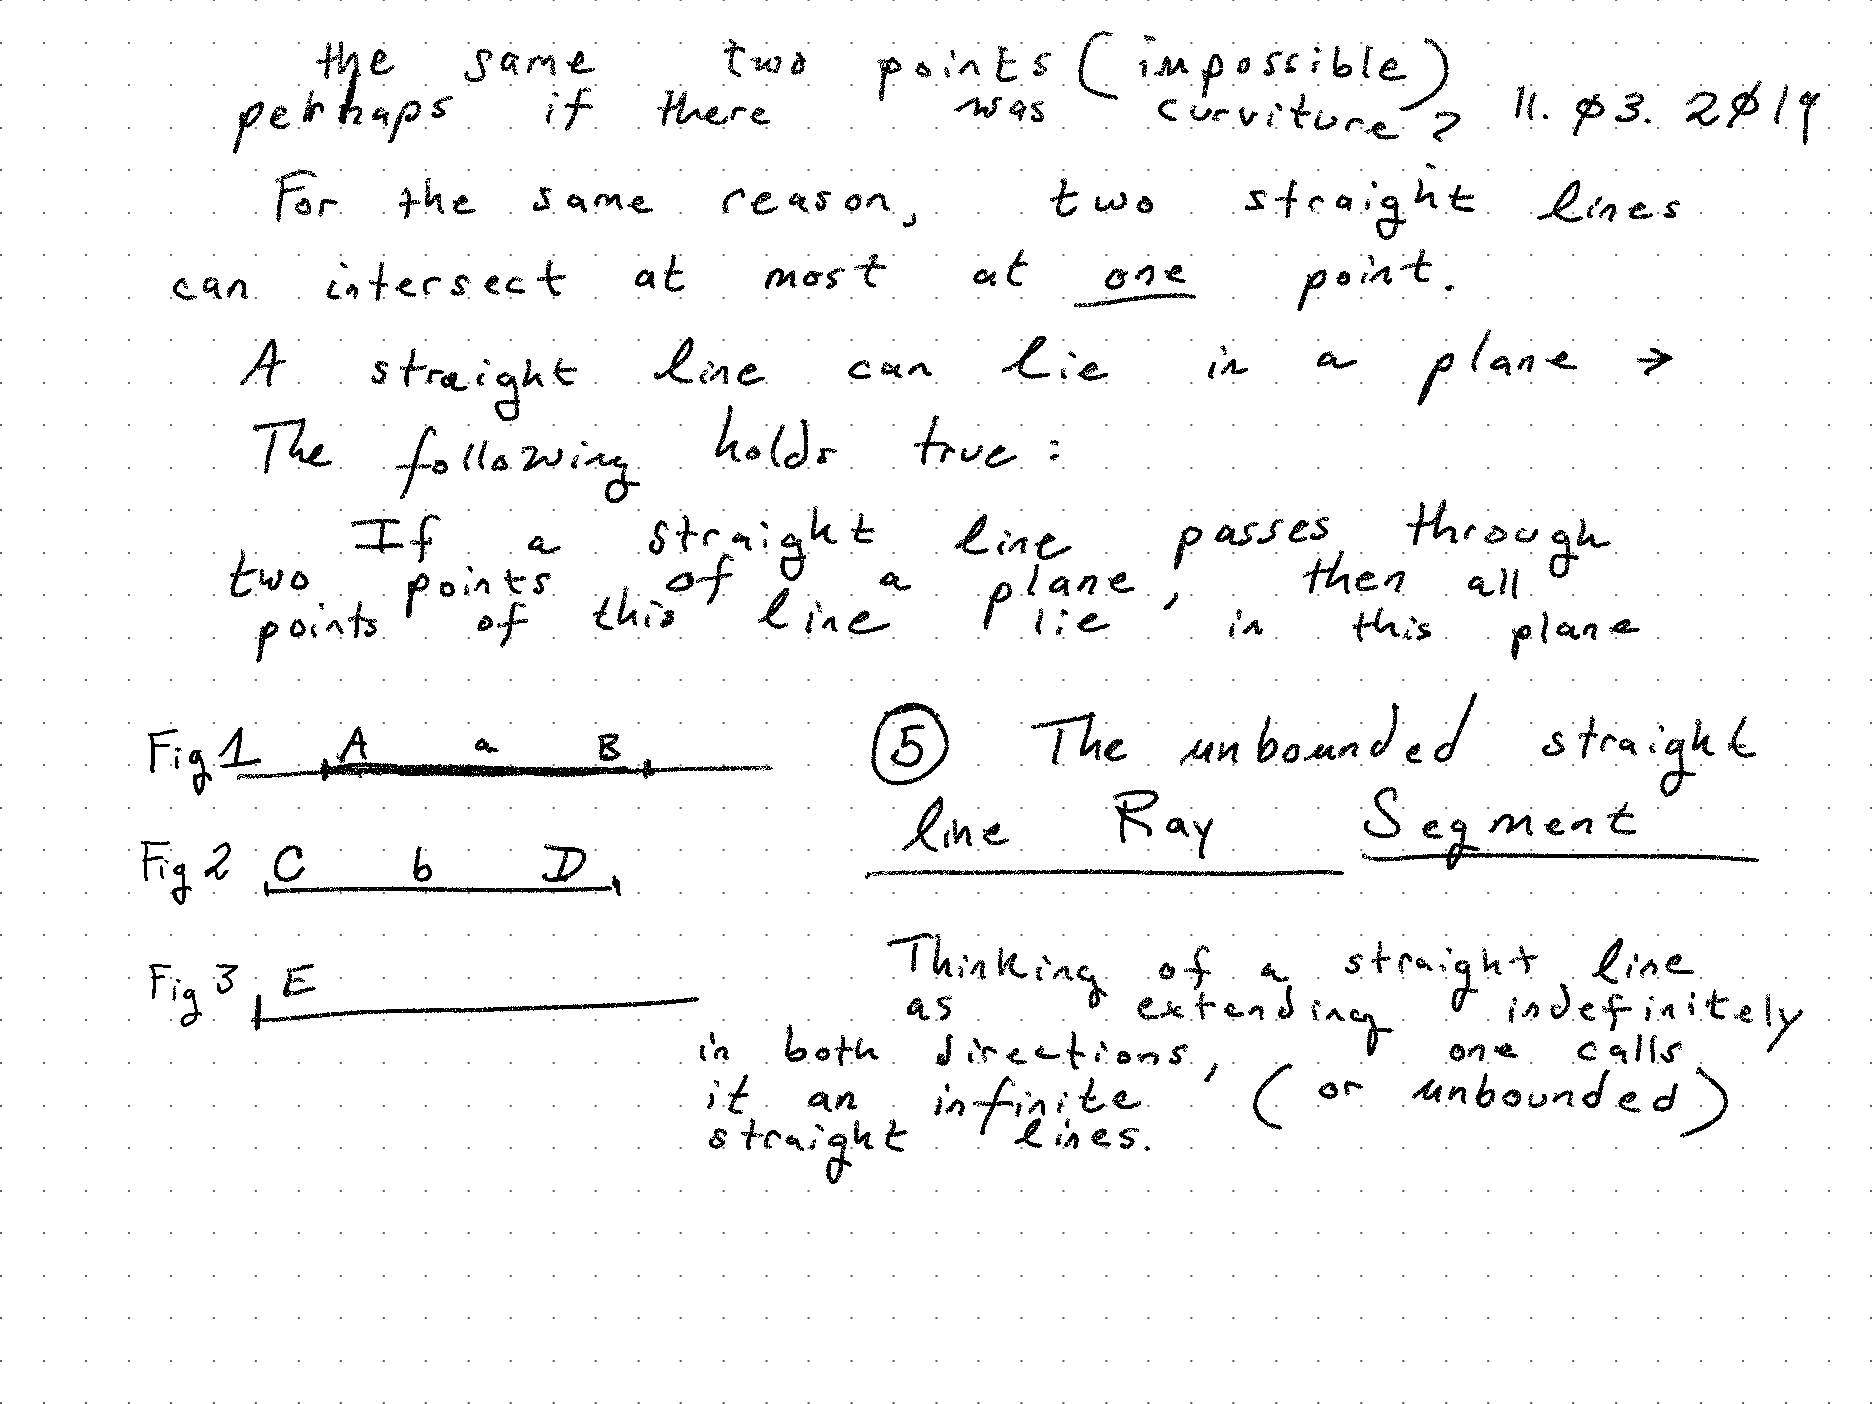 the same two points (impossible)
perhaps if there was curviture? 11.03.2019
For the same reason, two straight lines
can intersect at most at one point.
A straight line can lie in a plane →
The following holds true:
If a straight line passes through
two points of a plane, then all
points of this line lie in this plane
Fig 1 A a B
Fig 2 C b D
Fig 3 E
⑤ The unbounded straight
line Ray Segment
Thinking of a straight line
as extending indefinitely
in both directions, one calls
it an infinite (or unbounded)
straight lines.